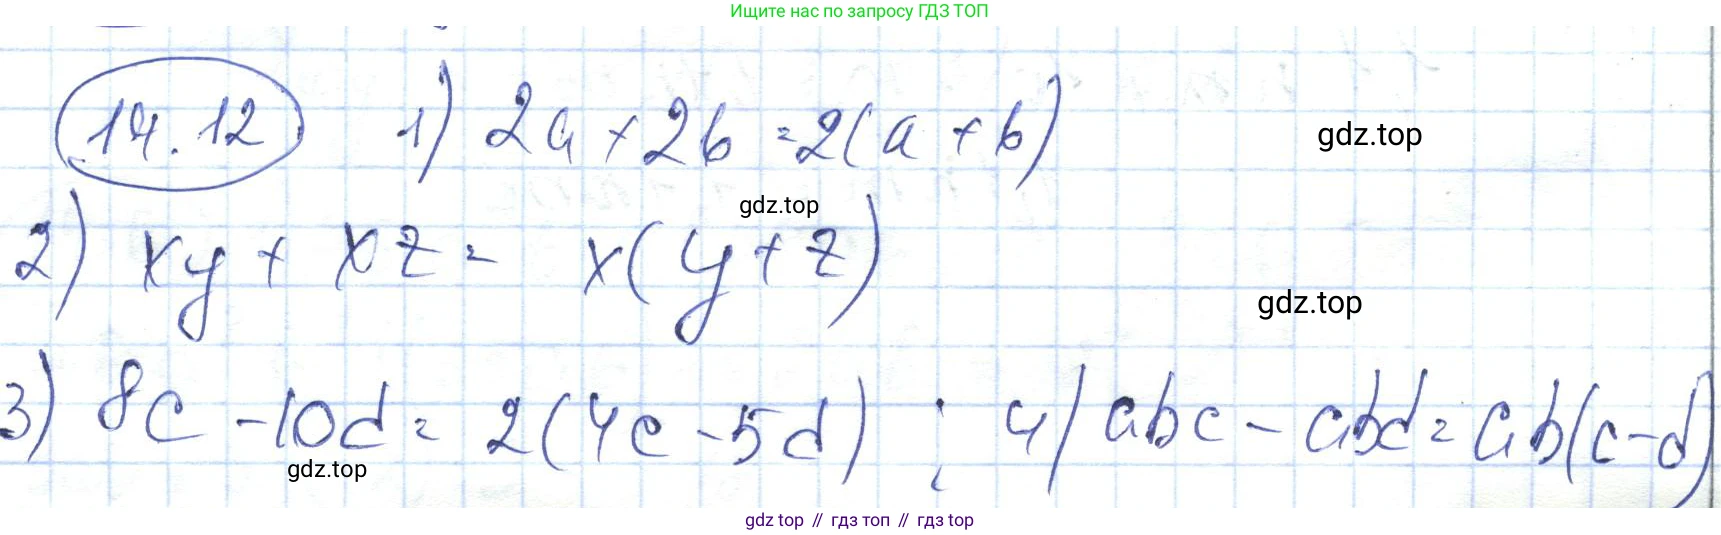 Ищите нас по запросу ГДЗ ТОП
14.12 1) 2a + 2b = 2(a + b)
gdz.top
gdz.top
2) xy + xz = x(y + z)
gdz.top
3) 8c - 10d = 2(4c - 5d) ; 4) abc - abd = ab(c - d)
gdz.top
gdz top // гдз топ // гдз top